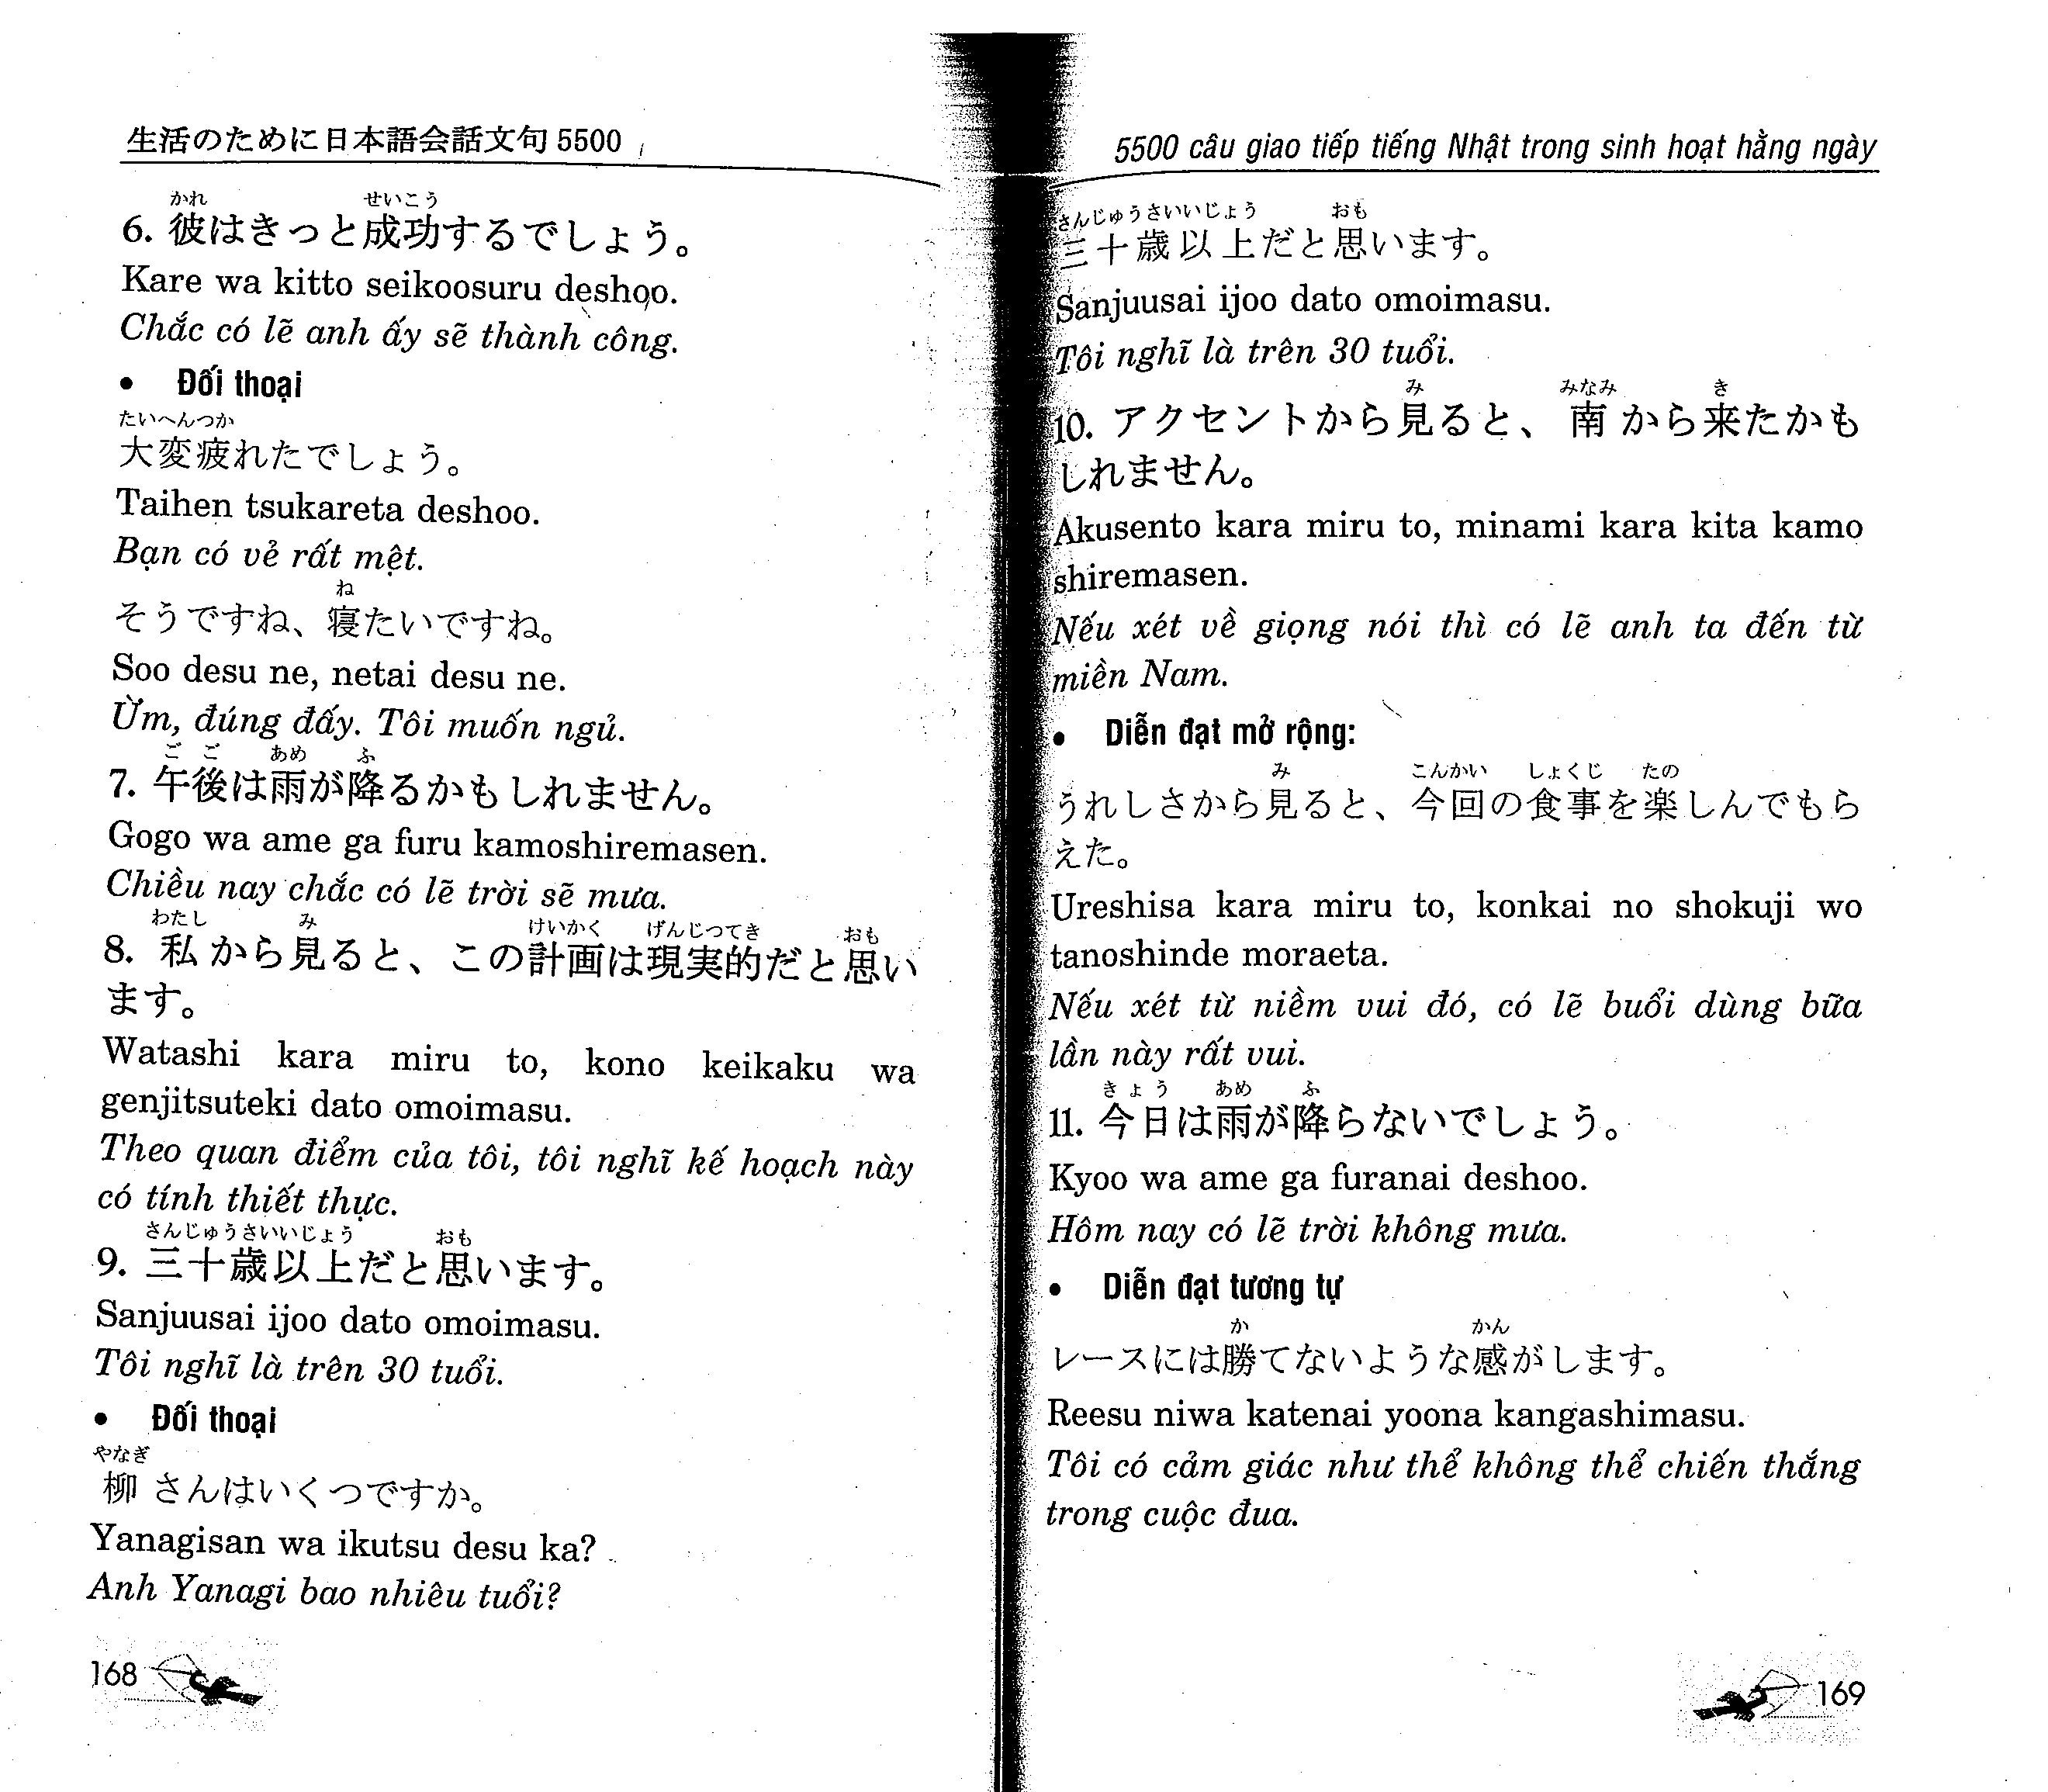 生活のために日本語会話文句5500
かれ せいこう
6. 彼はきっと成功するでしょう。
Kare wa kitto seikoosuru deshoo.
Chắc có lẽ anh ấy sẽ thành công.
• Đối thoại
たいへんつか
大変疲れたでしょう。
Taihen tsukareta deshoo.
Bạn có vẻ rất mệt.
ね
そうですね、寝たいですね。
Soo desu ne, netai desu ne.
Ừm, đúng đấy. Tôi muốn ngủ.
ご ご あめ ふ
7. 午後は雨が降るかもしれません。
Gogo wa ame ga furu kamoshiremasen.
Chiều nay chắc có lẽ trời sẽ mưa.
わたし み けいかく げんじつてき おも
8. 私から見ると、この計画は現実的だと思い
ます。
Watashi kara miru to, kono keikaku wa
genjitsuteki dato omoimasu.
Theo quan điểm của tôi, tôi nghĩ kế hoạch này
có tính thiết thực.
さんじゅうさいいじょう おも
9. 三十歳以上だと思います。
Sanjuusai ijoo dato omoimasu.
Tôi nghĩ là trên 30 tuổi.
• Đối thoại
やなぎ
柳さんはいくつですか。
Yanagisan wa ikutsu desu ka?
Anh Yanagi bao nhiêu tuổi?
168
5500 câu giao tiếp tiếng Nhật trong sinh hoạt hằng ngày
さんじゅうさいいじょう おも
三十歳以上だと思います。
Sanjuusai ijoo dato omoimasu.
Tôi nghĩ là trên 30 tuổi.
み みなみ き
10. アクセントから見ると、南から来たかも
しれません。
Akusento kara miru to, minami kara kita kamo
shiremasen.
Nếu xét về giọng nói thì có lẽ anh ta đến từ
miền Nam.
• Diễn đạt mở rộng:
み こんかい しょくじ たの
うれしさから見ると、今回の食事を楽しんでもら
えた。
Ureshisa kara miru to, konkai no shokuji wo
tanoshinde moraeta.
Nếu xét từ niềm vui đó, có lẽ buổi dùng bữa
lần này rất vui.
きょう あめ ふ
11. 今日は雨が降らないでしょう。
Kyoo wa ame ga furanai deshoo.
Hôm nay có lẽ trời không mưa.
• Diễn đạt tương tự
か かん
レースには勝てないような感がします。
Reesu niwa katenai yoona kangashimasu.
Tôi có cảm giác như thể không thể chiến thắng
trong cuộc đua.
169